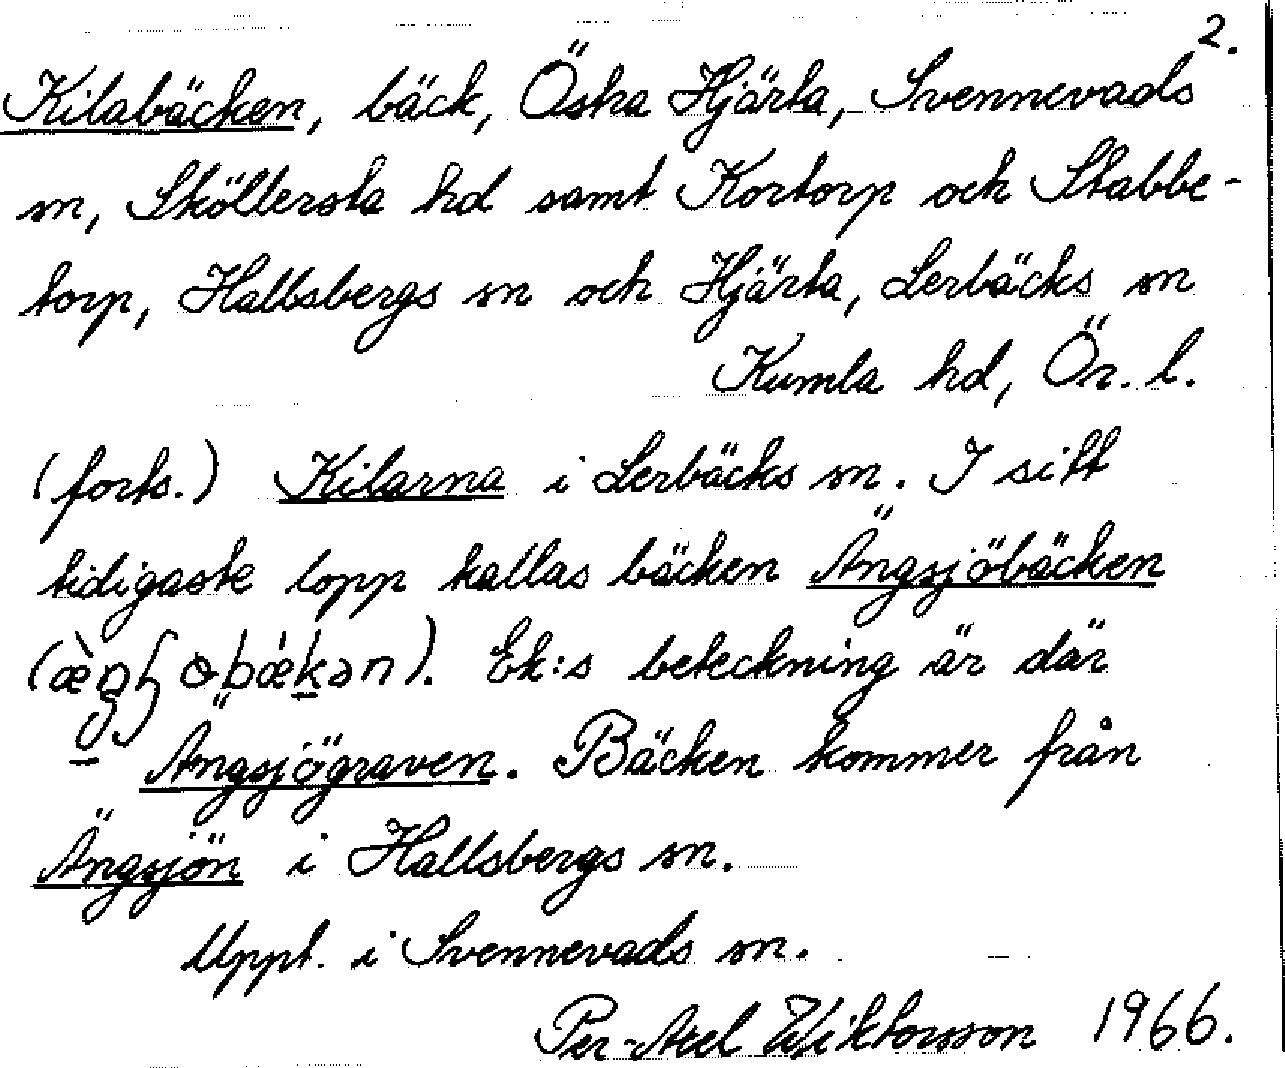 2.
Kilabäcken, bäck, Öska Hjärta, Svennevads
sn, Sköllersta hd samt Kortorp och Stabbe-
torp, Hallsbergs sn och Hjärta, Lerbäcks sn
Kumla hd, Ör. l.
(forts.) Kilarna i Lerbäcks sn. I sitt
tidigaste lopp kallas bäcken Ängsjöbäcken
). Ek:s beteckning är där
Ängsjögraven. Bäcken kommer från
Ängsjön i Hallsbergs sn.
Uppt. i Svennevads sn.
Per-Axel Wiktorsson 1966.